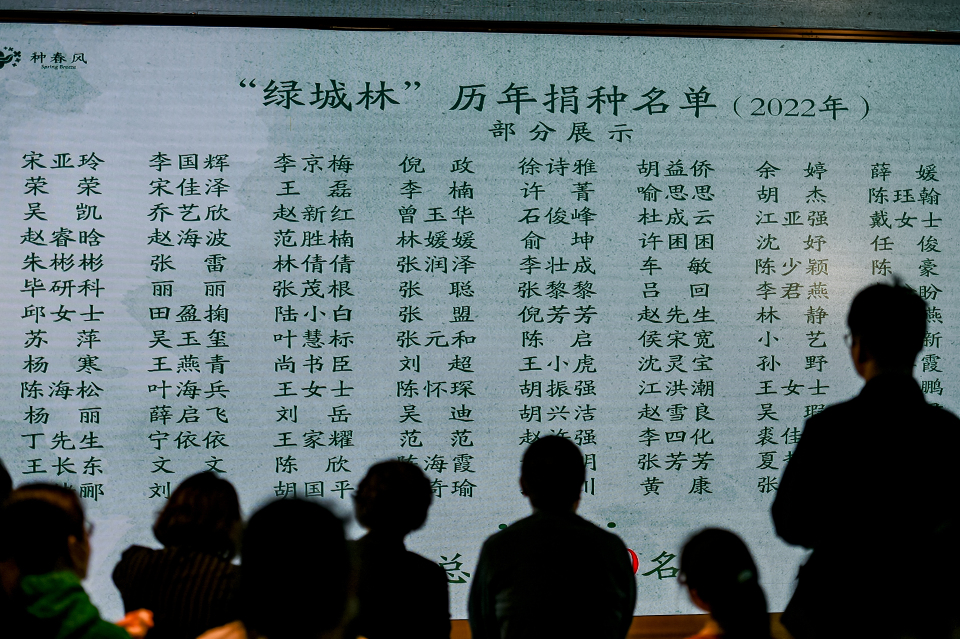 种春风
Spring Breeze
“绿城林”历年捐种名单（2022年）
部分展示
宋亚玲 李国辉 李京梅 倪政 徐诗雅 胡益侨 余婷 薛媛
荣荣 宋佳泽 王磊 李楠 许菁 喻思思 胡杰 陈珏翰
吴凯 乔艺欣 赵新红 曾玉华 石俊峰 杜成云 江亚强 戴女士
赵睿晗 赵海波 范胜楠 林媛媛 俞坤 许困困 沈妤 任俊
朱彬彬 张雷 林倩倩 张润泽 李壮成 车敏 陈少颖 陈豪
毕研科 丽丽 张茂根 张聪 张黎黎 吕回 李君燕 盼
邱女士 田盈掬 陆小白 张盟 倪芳芳 赵先生 林静 燕
苏萍 吴玉玺 叶慧标 张元和 陈启 侯宋宽 小艺 新
杨寒 王燕青 尚书臣 刘超 王小虎 沈灵宝 孙野 霞
陈海松 叶海兵 王女士 陈怀琛 胡振强 江洪潮 王女士 鹏
杨丽 薛启飞 刘岳 吴迪 胡兴洁 赵雪良 吴瑕
丁先生 宁依依 王家耀 范范 赵许强 李四化 裘佳
王长东 文文 陈欣 陈海霞 明 张芳芳 夏
郦 刘 胡国平 奇瑜 川 黄康 张
总 名